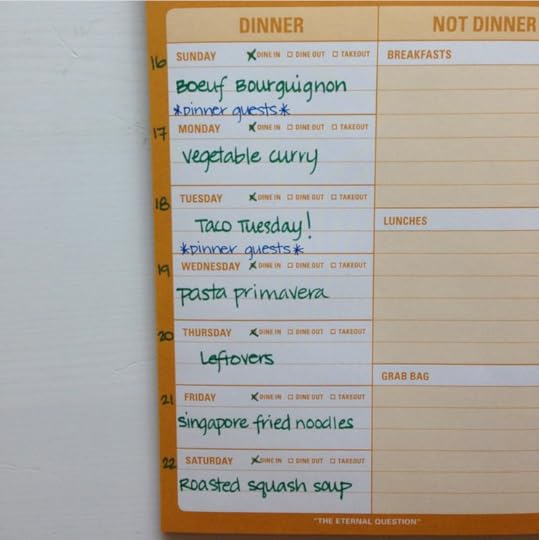 DINNER
NOT DINNER
16 SUNDAY DINE IN DINE OUT TAKEOUT
Boeuf Bourguignon
*Dinner guests*
17 MONDAY DINE IN DINE OUT TAKEOUT
vegetable curry
18 TUESDAY DINE IN DINE OUT TAKEOUT
Taco Tuesday!
*Dinner guests*
19 WEDNESDAY DINE IN DINE OUT TAKEOUT
pasta primavera
20 THURSDAY DINE IN DINE OUT TAKEOUT
Leftovers
21 FRIDAY DINE IN DINE OUT TAKEOUT
singapore fried noodles
22 SATURDAY DINE IN DINE OUT TAKEOUT
Roasted squash soup
BREAKFASTS
LUNCHES
GRAB BAG
"THE ETERNAL QUESTION"